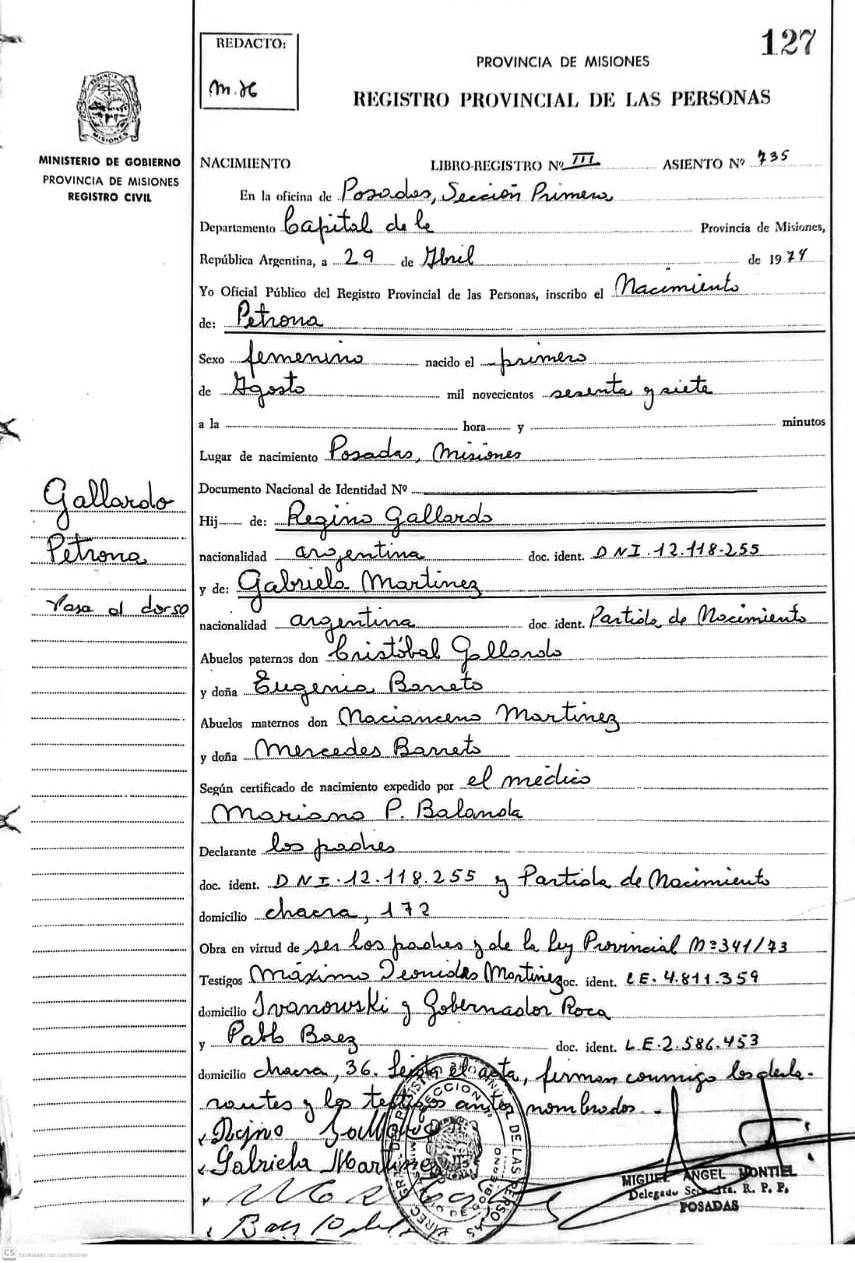 127
REDACTO:
M. H
PROVINCIA DE MISIONES
REGISTRO PROVINCIAL DE LAS PERSONAS
MINISTERIO DE GOBIERNO
PROVINCIA DE MISIONES
REGISTRO CIVIL
NACIMIENTO LIBRO-REGISTRO Nº III ASIENTO Nº 735
En la oficina de Posadas, Sección Primera
Departamento Capital de la Provincia de Misiones,
República Argentina, a 29 de Abril de 1974
Yo Oficial Público del Registro Provincial de las Personas, inscribo el Nacimiento
de: Petrona
Sexo femenino nacido el primero
de Agosto mil novecientos sesenta y siete
a la hora y minutos
Lugar de nacimiento Posadas, Misiones
Documento Nacional de Identidad Nº
Gallardo
Petrona
Pasa al dorso
Hij de: Regino Gallardo
nacionalidad argentina doc. ident. DNI.12.118-255
y de: Gabriela Martinez
nacionalidad argentina doc. ident. Partida de Nacimiento
Abuelos paternos don Cristóbal Gallardo
y doña Eugenia Barreto
Abuelos maternos don Nacianceno Martinez
y doña Mercedes Barreto
Según certificado de nacimiento expedido por el médico
Mariano P. Balanda
Declarante los padres
doc. ident. DNI.12.118.255 y Partida de Nacimiento
domicilio chacra, 172
Obra en virtud de ser los padres y de la Ley Provincial Nº341/73
Testigos Máximo Leonidas Martinez doc. ident. LE.4.811.359
domicilio Ivanowski y Gobernador Roca
y Pablo Baez doc. ident. L.E.2.586.453
domicilio chacra, 36. Leída el acta, firman conmigo los decla-
rantes y los testigos antes nombrados.-
Gabriela Martinez
MIGUEL ANGEL MONTIEL
R. P. P.
POSADAS